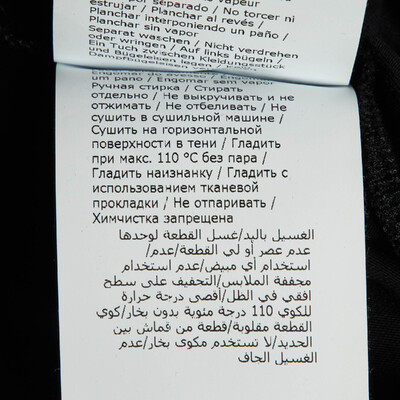 vapeur
por separado / No torcer ni
estrujar / Planchar al revés /
Planchar interponiendo un paño /
Planchar sin vapor
Separat waschen / Nicht verdrehen
oder wringen / Auf links bügeln /
Ein Tuch zwischen Kleidungsstück
und Bügeleisen legen /
Dampfbügeleisen
Engomar do avesso / Engomar
um pano / Engomar sem vapor
Ручная стирка / Стирать
отдельно / Не выкручивать и не
отжимать / Не отбеливать / Не
сушить в сушильной машине /
Сушить на горизонтальной
поверхности в тени / Гладить
при макс. 110 °C без пара /
Гладить наизнанку / Гладить с
использованием тканевой
прокладки / Не отпаривать /
Химчистка запрещена
الغسيل باليد/غسل القطعة لوحدها
/عدم عصر أو لي القطعة/عدم
استخدام أي مبيض/عدم استخدام
مجففة الملابس/التجفيف على سطح
افقي في الظل/أقصى درجة حرارة
للكوي 110 درجة مئوية بدون بخار/كوي
القطعة مقلوبة/قطعة من قماش بين
الحديد/لا تستخدم مكوى بخار/عدم
الغسيل الجاف